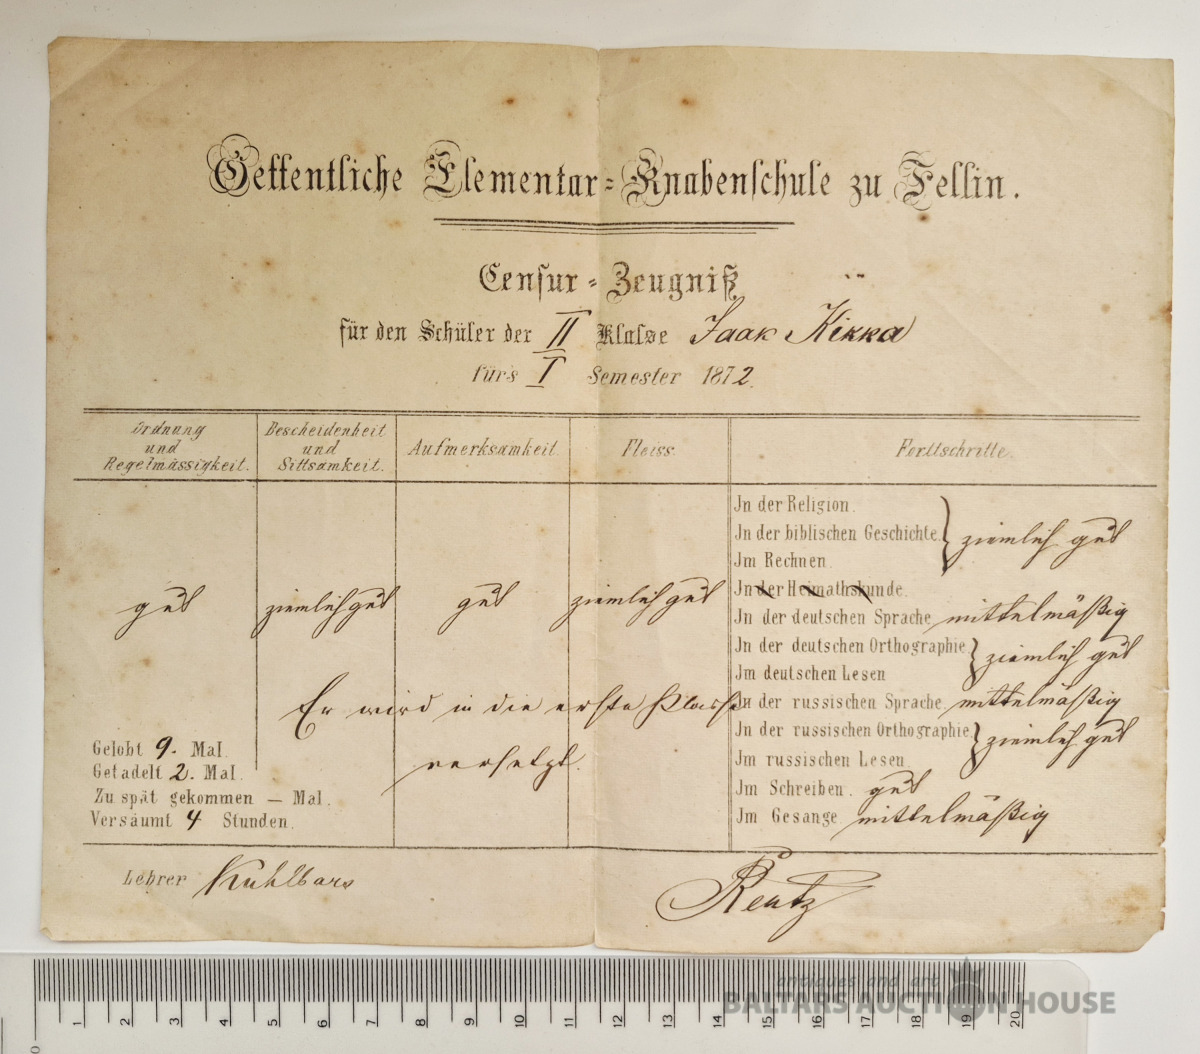 Oeffentliche Elementar-Knabenschule zu Fellin.
Censur-Zeugniß
für den Schüler der II Klasse Jaak Kikka
fürs I Semester 1872.
Ordnung und Regelmässigkeit.
Bescheidenheit und Sittsamkeit.
Aufmerksamkeit
Fleiss.
Forttschritte.
gut
ziemlich gut
gut
ziemlich gut
Jn der Religion.
Jn der biblischen Geschichte
Jm Rechnen
ziemlich gut
Jn der Heimathskunde.
Jn der deutschen Sprache mittelmäßig
Jn der deutschen Orthographie
Jm deutschen Lesen
ziemlich gut
Jn der russischen Sprache. mittelmäßig
Jn der russischen Orthographie
Jm russischen Lesen
ziemlich gut
Jm Schreiben. gut
Jm Gesange mittelmäßig
Er wird in die erste Klasse
versetzt.
Gelobt 9. Mal.
Getadelt 2. Mal.
Zu spät gekommen — Mal.
Versäumt 4 Stunden.
Lehrer Kuhlbars
Reutz
0 1 2 3 4 5 6 7 8 9 10 11 12 13 14 15 16 17 18 19 20
antiques and art
BALTARS AUCTION HOUSE